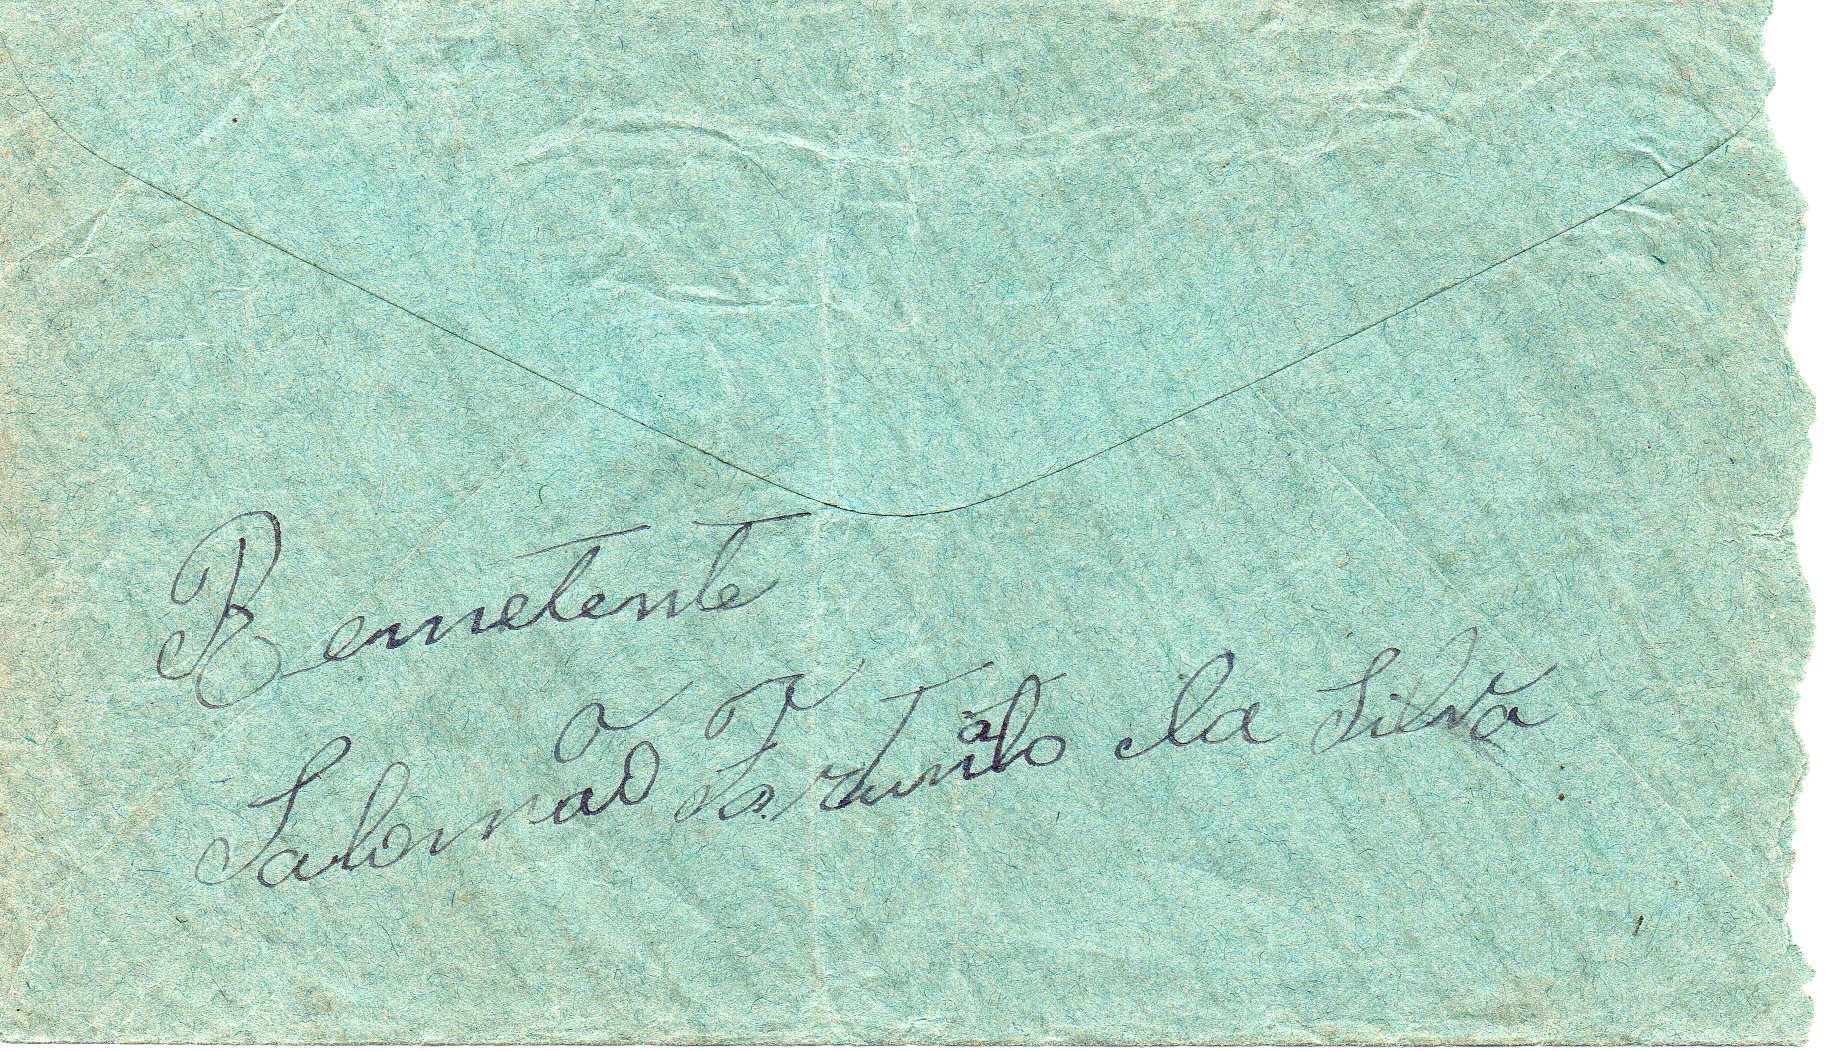 Remetente
Salomão Fortunato da Silva